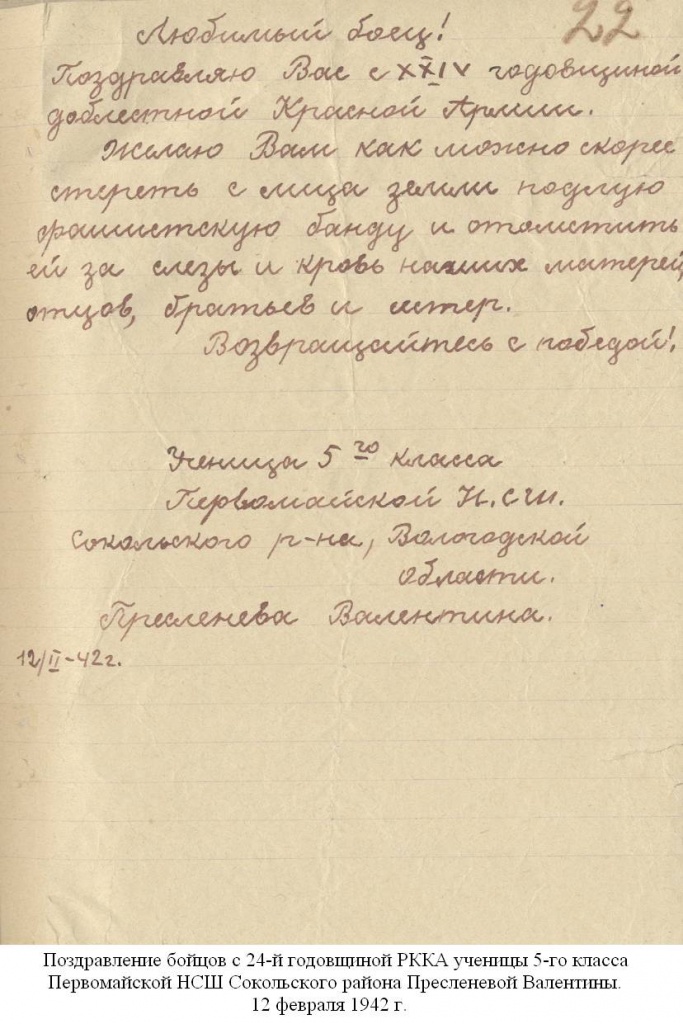 22
Любимый боец!
Поздравляю Вас с XXIV годовщиной
доблестной Красной Армии.
Желаю Вам как можно скорее
стереть с лица земли подлую
фашистскую банду и отомстить
ей за слезы и кровь наших матерей,
отцов, братьев и сестер.
Возвращайтесь с победой!
Ученица 5го класса
Первомайской Н.С.Ш.
Сокольского р-на, Вологодской
области.
Пресленева Валентина.
12/II-42г.
Поздравление бойцов с 24-й годовщиной РККА ученицы 5-го класса
Первомайской НСШ Сокольского района Пресленевой Валентины.
12 февраля 1942 г.